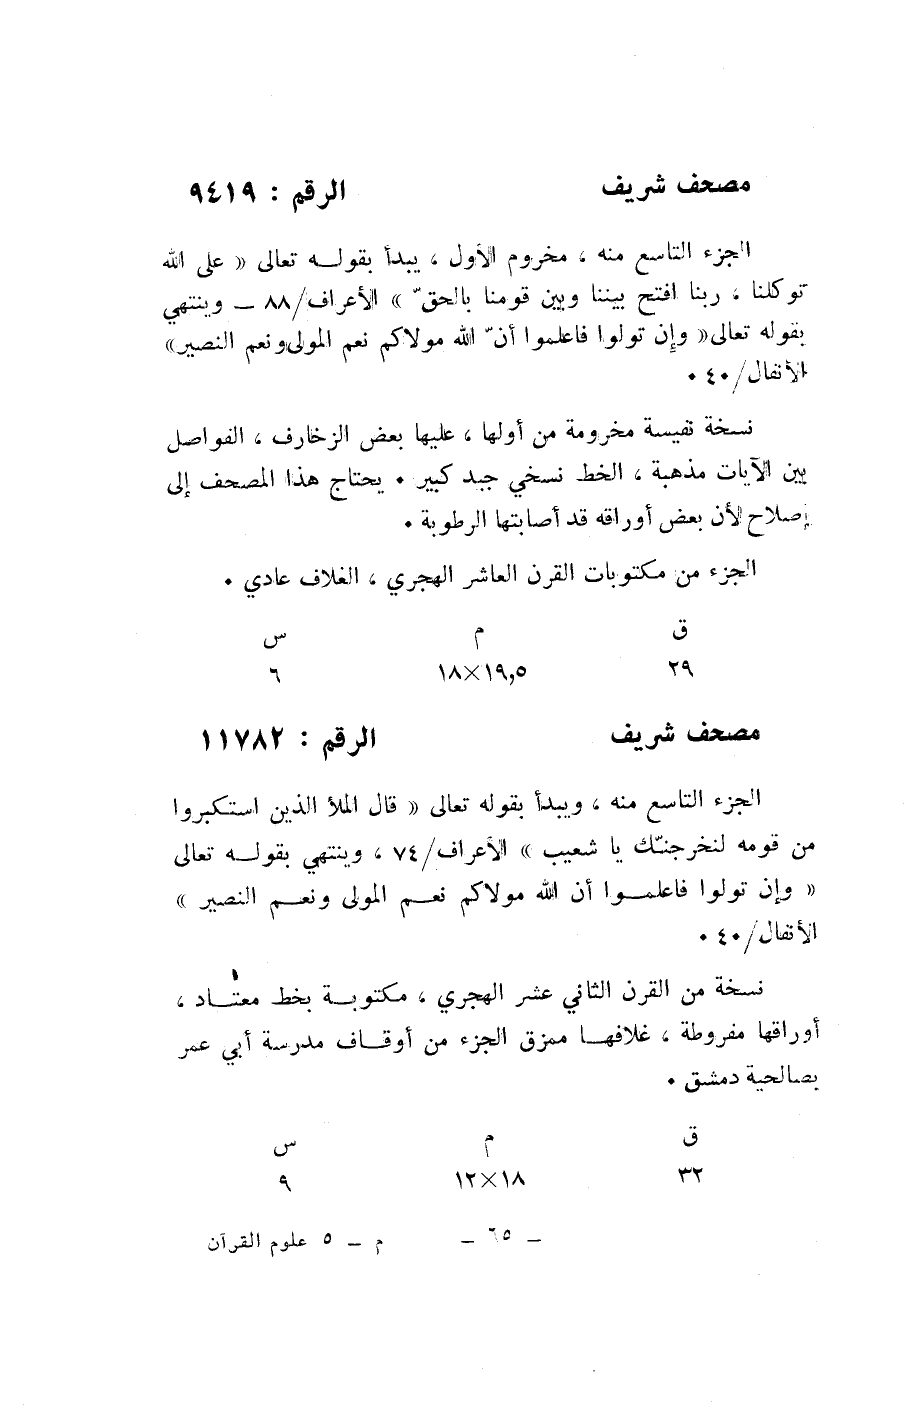 مصحف شريف الرقم : ٩٤١٩
الجزء التاسع منه ، مخروم الأول ، يبدأ بقولـه تعالى « على الله
توكلنا ، ربنا افتح بيننا وبين قومنا بالحقّ » الأعراف/٨٨ ــ وينتهي
بقوله تعالى« وإن تولوا فاعلموا أنّ الله مولاكم نعم المولى ونعم النصير»
الأنفال/٤٠ ٠
نسخة نفيسة مخرومة من أولها ، عليها بعض الزخارف ، الفواصل
بين الآيات مذهبة ، الخط نسخي جيد كبير ٠ يحتاج هذا المصحف إلى
إصلاح لأن بعض أوراقه قد أصابتها الرطوبة ٠
الجزء من مكتوبات القرن العاشر الهجري ، الغلاف عادي ٠
ق م س
٢٩ ١٩,٥×١٨ ٦
مصحف شريف الرقم : ١١٧٨٢
الجزء التاسع منه ، ويبدأ بقوله تعالى « قال الملأ الذين استكبروا
من قومه لنخرجنّك يا شعيب » الأعراف/٧٤ ، وينتهي بقولـه تعالى
« وإن تولوا فاعلمـوا أن الله مولاكم نعـم المولى ونعـم النصير »
الأنفال/٤٠ ٠
نسخة من القرن الثاني عشر الهجري ، مكتوبـة بخط معتـاد ،
أوراقها مفروطة ، غلافهـا ممزق الجزء من أوقـاف مدرسة أبي عمر
بصالحية دمشق ٠
ق م س
٣٢ ١٨×١٢ ٩
ــ ٦٥ ــ م ــ ٥ علوم القرآن